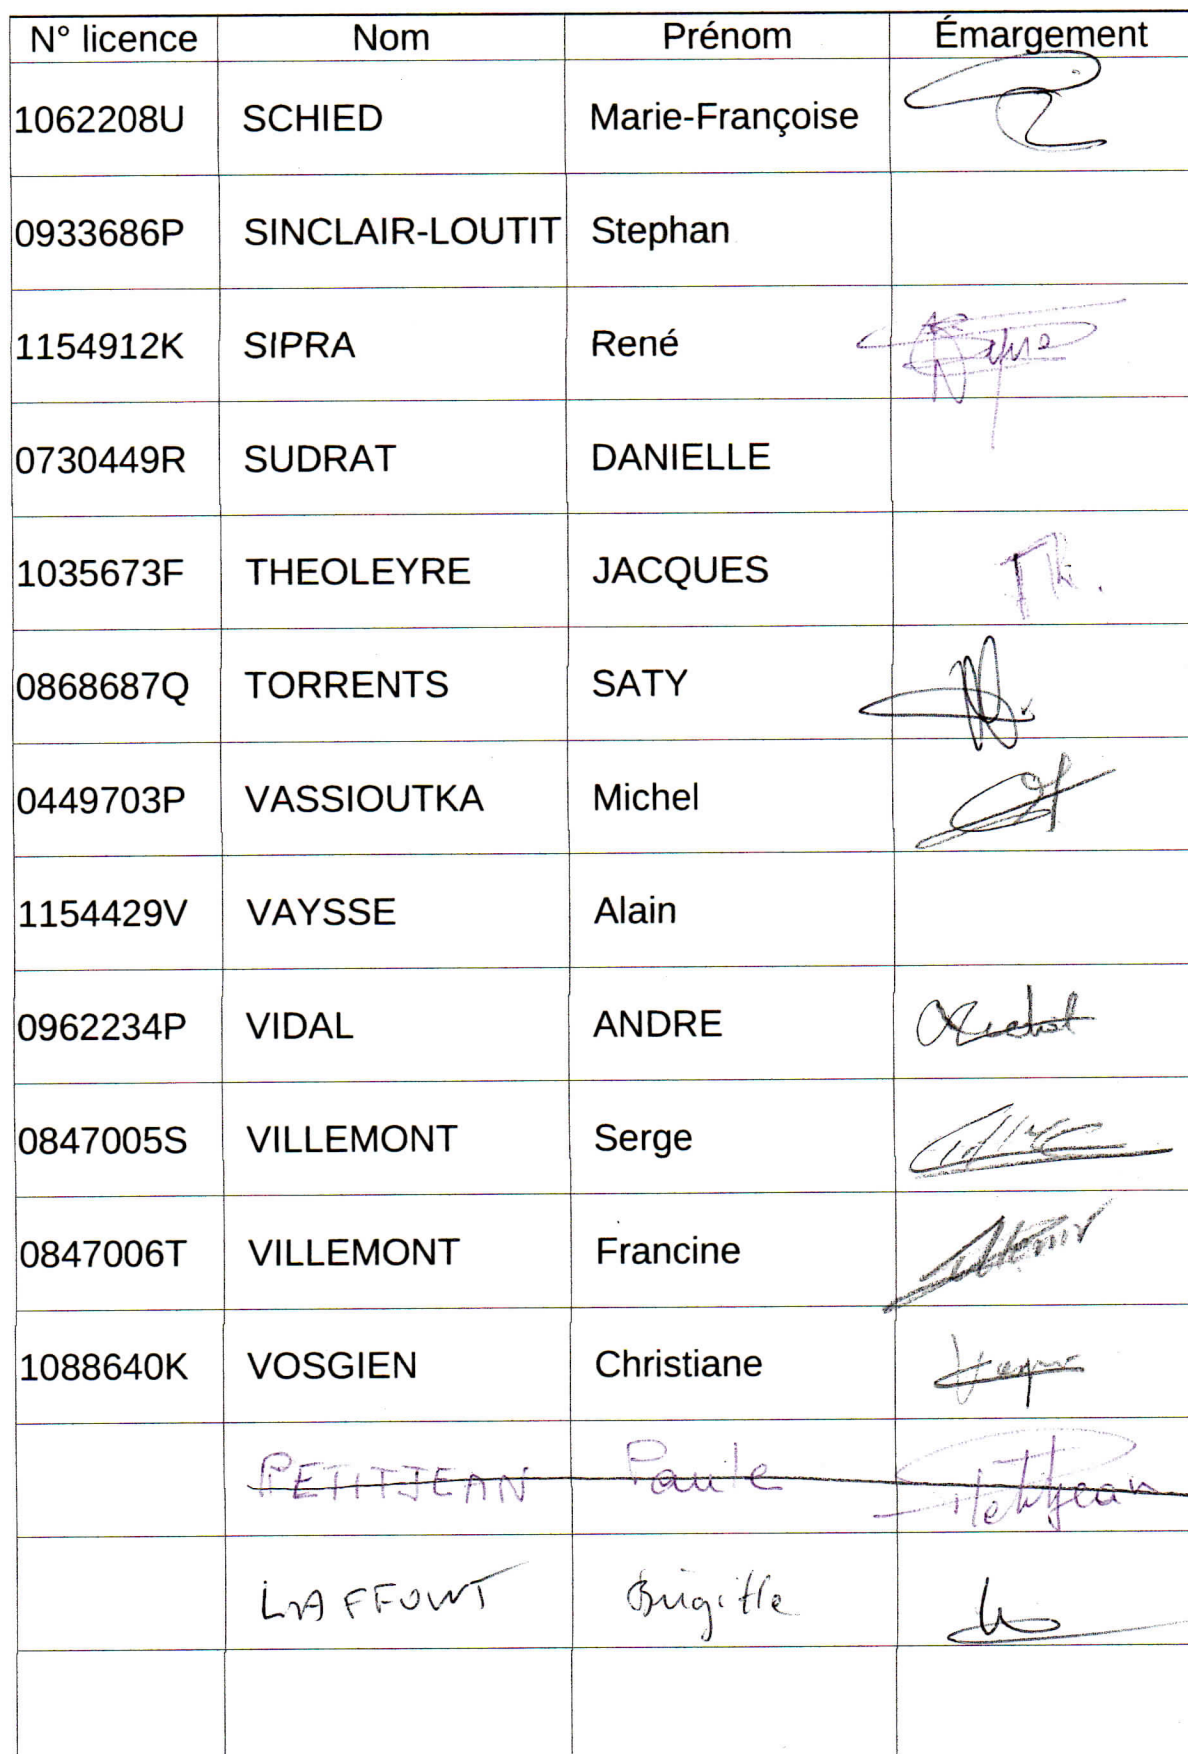 N° licence Nom Prénom Émargement
1062208U SCHIED Marie-Françoise
0933686P SINCLAIR-LOUTIT Stephan
1154912K SIPRA René
0730449R SUDRAT DANIELLE
1035673F THEOLEYRE JACQUES Th.
0868687Q TORRENTS SATY
0449703P VASSIOUTKA Michel
1154429V VAYSSE Alain
0962234P VIDAL ANDRE
0847005S VILLEMONT Serge
0847006T VILLEMONT Francine
1088640K VOSGIEN Christiane
PETITJEAN Paule Petitjean
LAFFONT Brigitte